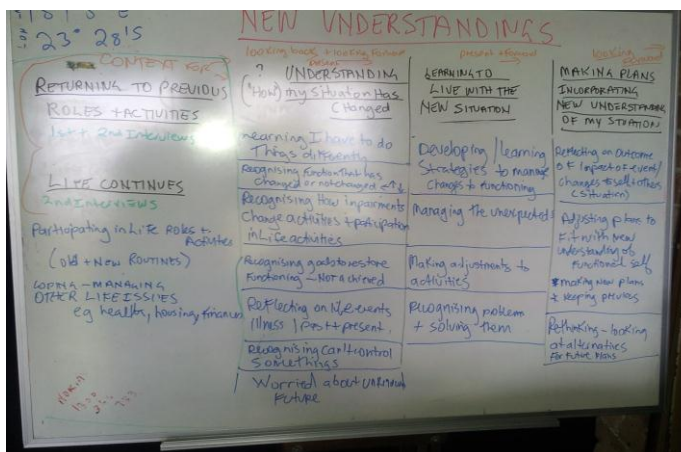 NEW UNDERSTANDINGS
23° 28'S
CONTEXT FOR
RETURNING TO PREVIOUS
ROLES + ACTIVITIES
1st + 2nd Interviews
LIFE CONTINUES
2nd INTERVIEWS
Participating in Life Roles +
Activities
(old + New ROUTINES)
COPING - MANAGING
OTHER LIFE ISSUES
eg health, housing, finances
looking back + looking forward
present
?
UNDERSTANDING
(How) my Situation Has
Changed
Learning I have to do
Things differently
Recognising function that has
changed or not changed
Recognising How impairments
Change activities + participation
in Life activities
Recognising goals to restore
Functioning - Not achieved
Reflecting on events
illness / past + present.
Recognising Can't control
Somethings
Worried about unknown
future
present + forward
LEARNING TO
LIVE WITH THE
NEW SITUATION
Developing / learning
Strategies to manage
Changes to functioning
Managing the unexpected
Making adjustments to
activities
Recognising problem
+ solving them
looking
forward
MAKING PLANS
INCORPORATING
NEW UNDERSTANDING
OF MY SITUATION
Reflecting on Outcome
OF impact of event/
changes to self + others
(Situation)
Adjusting plans to
Fit with New
understanding of
functional self
making New plans
+ keeping
Rethinking - looking
at alternatives
For future plans